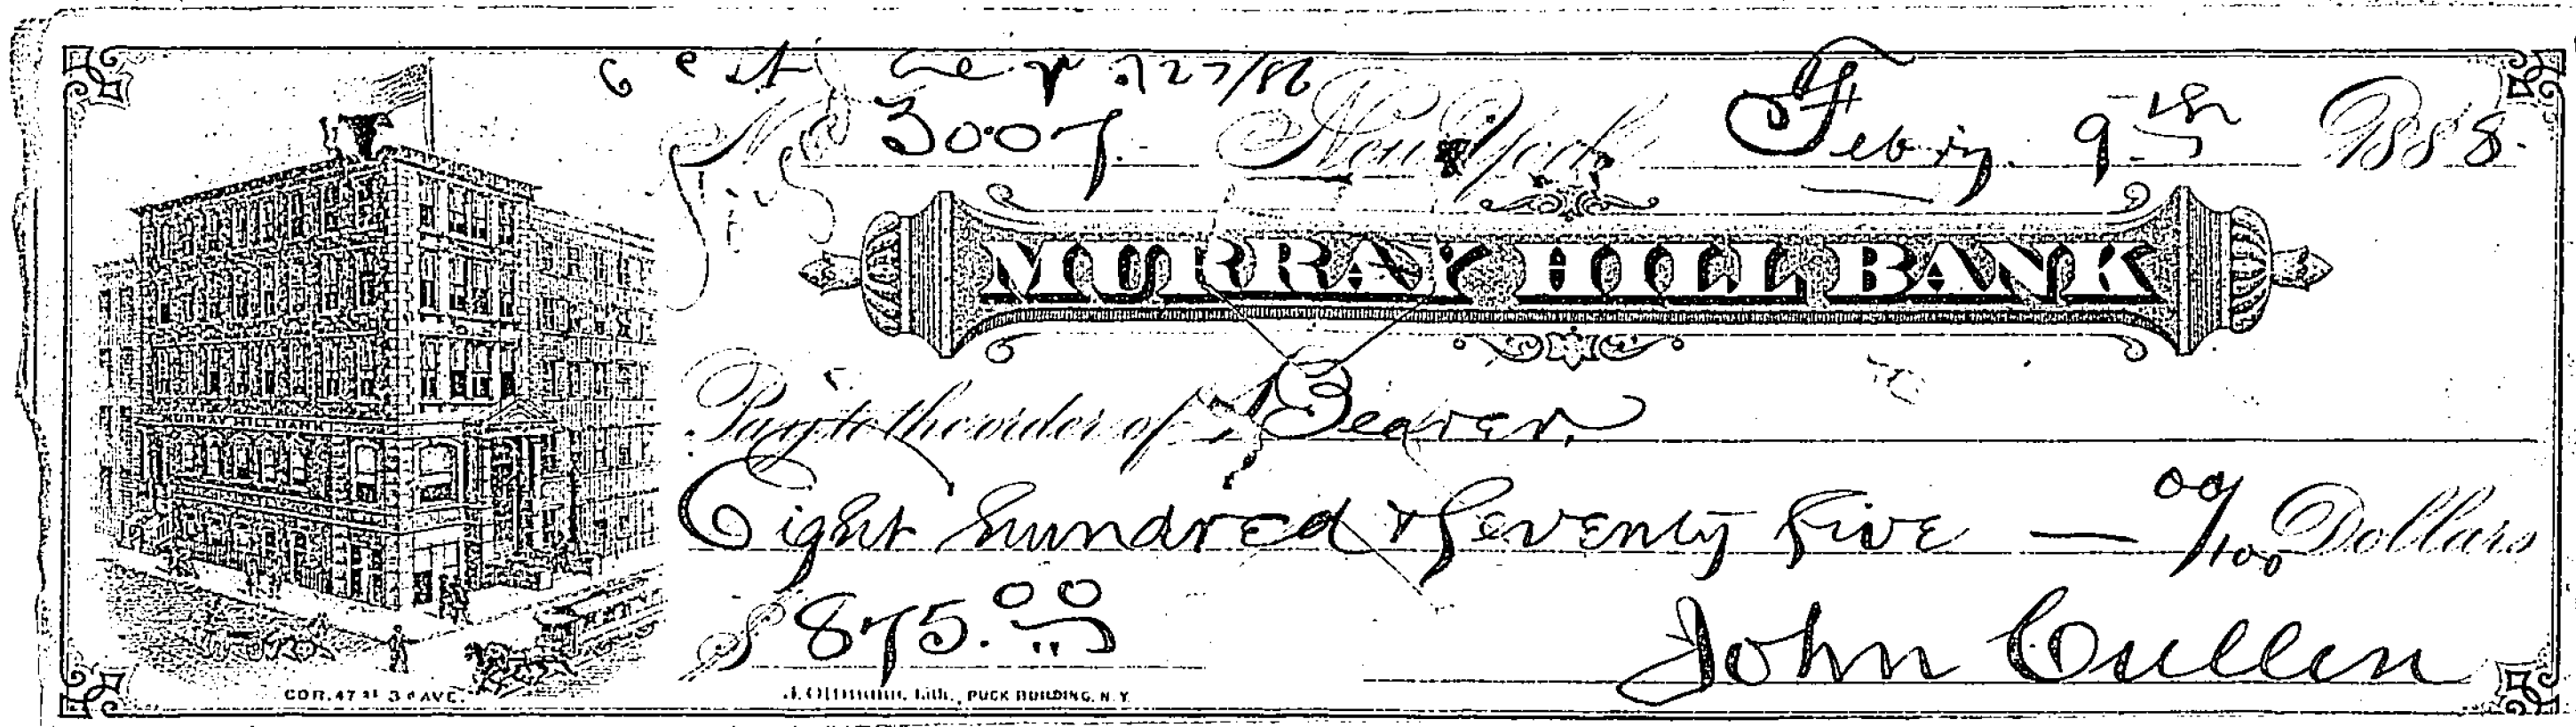 27/86
No 3007 New York Feb'ry. 9th 1888.
MURRAY HILL BANK
Pay to the order of Bearer,
Eight hundred & Seventy five — 00/100 Dollars
$ 875.00
John Cullen
MURRAY HILL BANK
COR. 47 St 3d AVE.
J. Ottmann, Lith., PUCK BUILDING, N.Y.